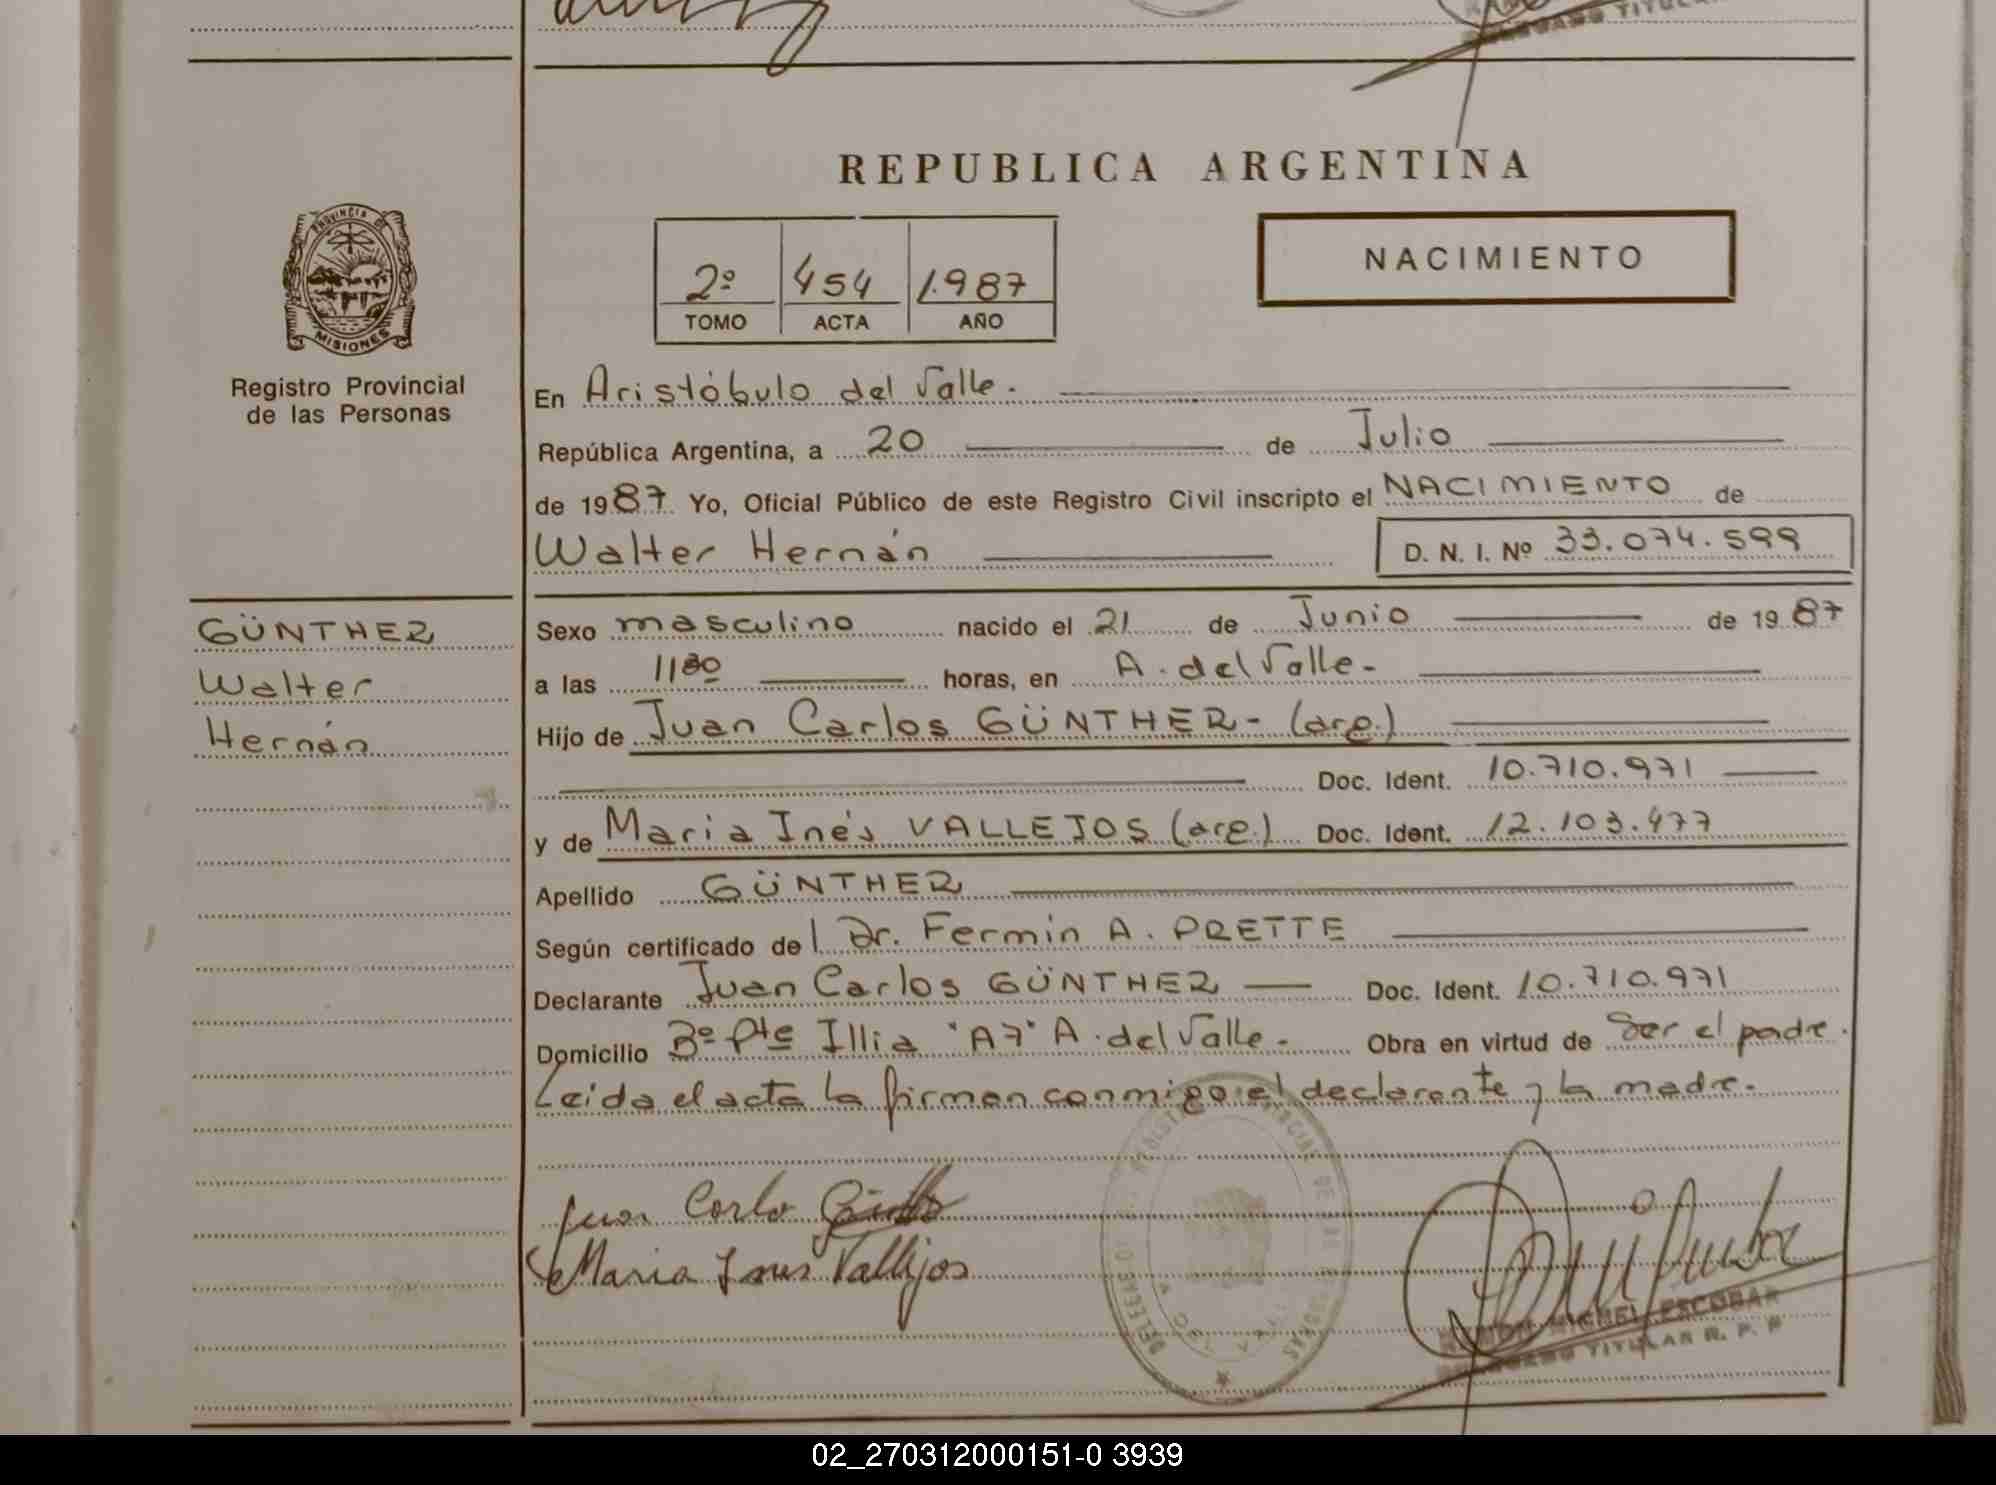 REPUBLICA ARGENTINA
PROVINCIA DE
MISIONES
Registro Provincial
de las Personas
2º 454 1.987
TOMO ACTA AÑO
NACIMIENTO
En Aristóbulo del Valle.
República Argentina, a 20 de Julio
de 1987 Yo, Oficial Público de este Registro Civil inscripto el NACIMIENTO de
Walter Hernán D. N. I. Nº 33.074.599
GÜNTHER
Walter
Hernán
Sexo masculino nacido el 21 de Junio de 1987
a las 11³⁰ horas, en A. del Valle.-
Hijo de Juan Carlos GÜNTHER- (arg.)
Doc. Ident. 10.710.971
y de Maria Inés VALLEJOS (arg.) Doc. Ident. 12.103.477
Apellido GÜNTHER
Según certificado del Dr. Fermin A. PRETTE
Declarante Juan Carlos GÜNTHER Doc. Ident. 10.710.971
Domicilio Bº Pte Illia "A7" A. del Valle.- Obra en virtud de Ser el padre.
Leida el acta la firman conmigo el declarante y la madre.
Juan Carlo
Maria Ines Vallejos
RAMON MICHEL ESCOBAR
DELEGADO TITULAR R. P. P.
02_270312000151-0 3939